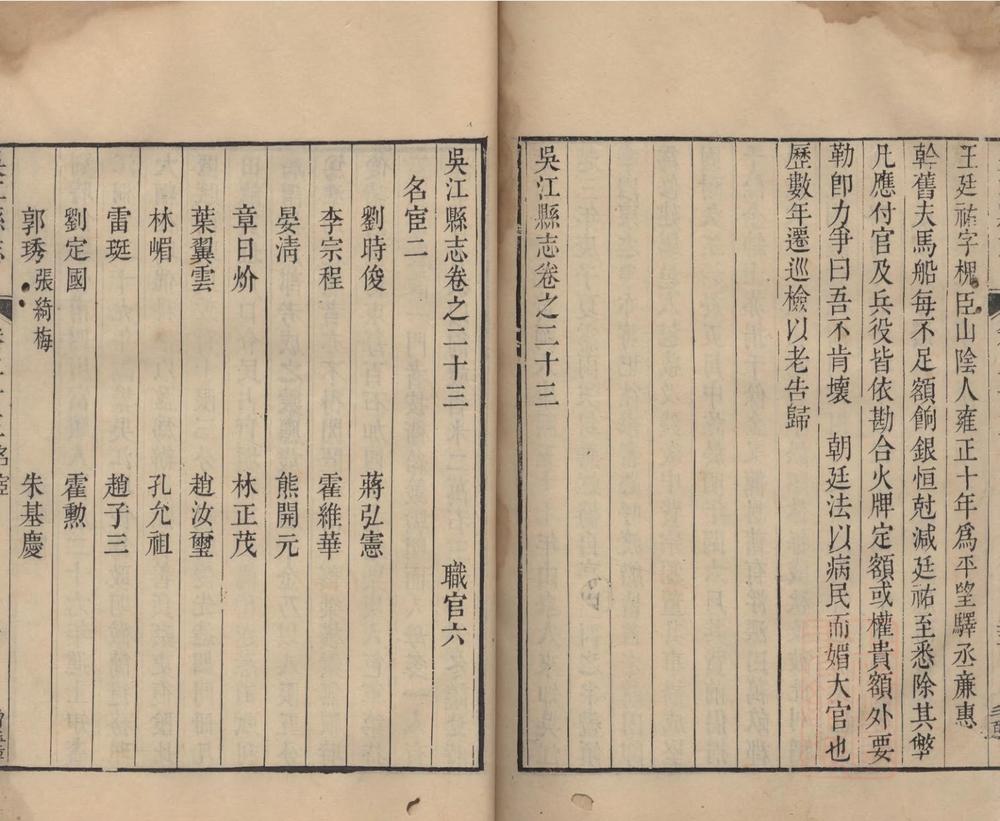 王廷祐字槐臣山陰人雍正十年爲平望驛丞亷惠
幹舊夫馬船每不足額餉銀恒尅減廷祐至悉除其弊
凡應付官及兵役皆依勘合火牌定額或權貴額外要
勒卽力争曰吾不肯壞　朝廷法以病民而媚大官也
歷數年遷巡檢以老告歸
吳江縣志卷之二十三
吳江縣志卷之二十三　職官六
名宦二
劉時俊　蔣弘憲
李宗程　霍維華
晏清　熊開元
章日炌　林正茂
葉翼雲　趙汝璽
林嵋　孔允祖
雷珽　趙子三
劉定國　霍勲
郭琇　張綺梅　朱基慶